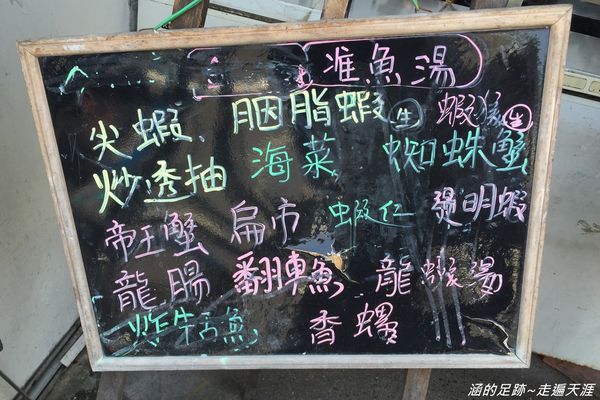 准魚湯
尖蝦、胭脂蝦(生) 蝦猴(生)
炒透抽 海菜 蜘蛛蟹
帝王蟹 扁市 蝦仁 燙明蝦
龍腸 翻車魚 龍蝦湯
炸牛舌魚 香螺
涵的足跡~走遍天涯